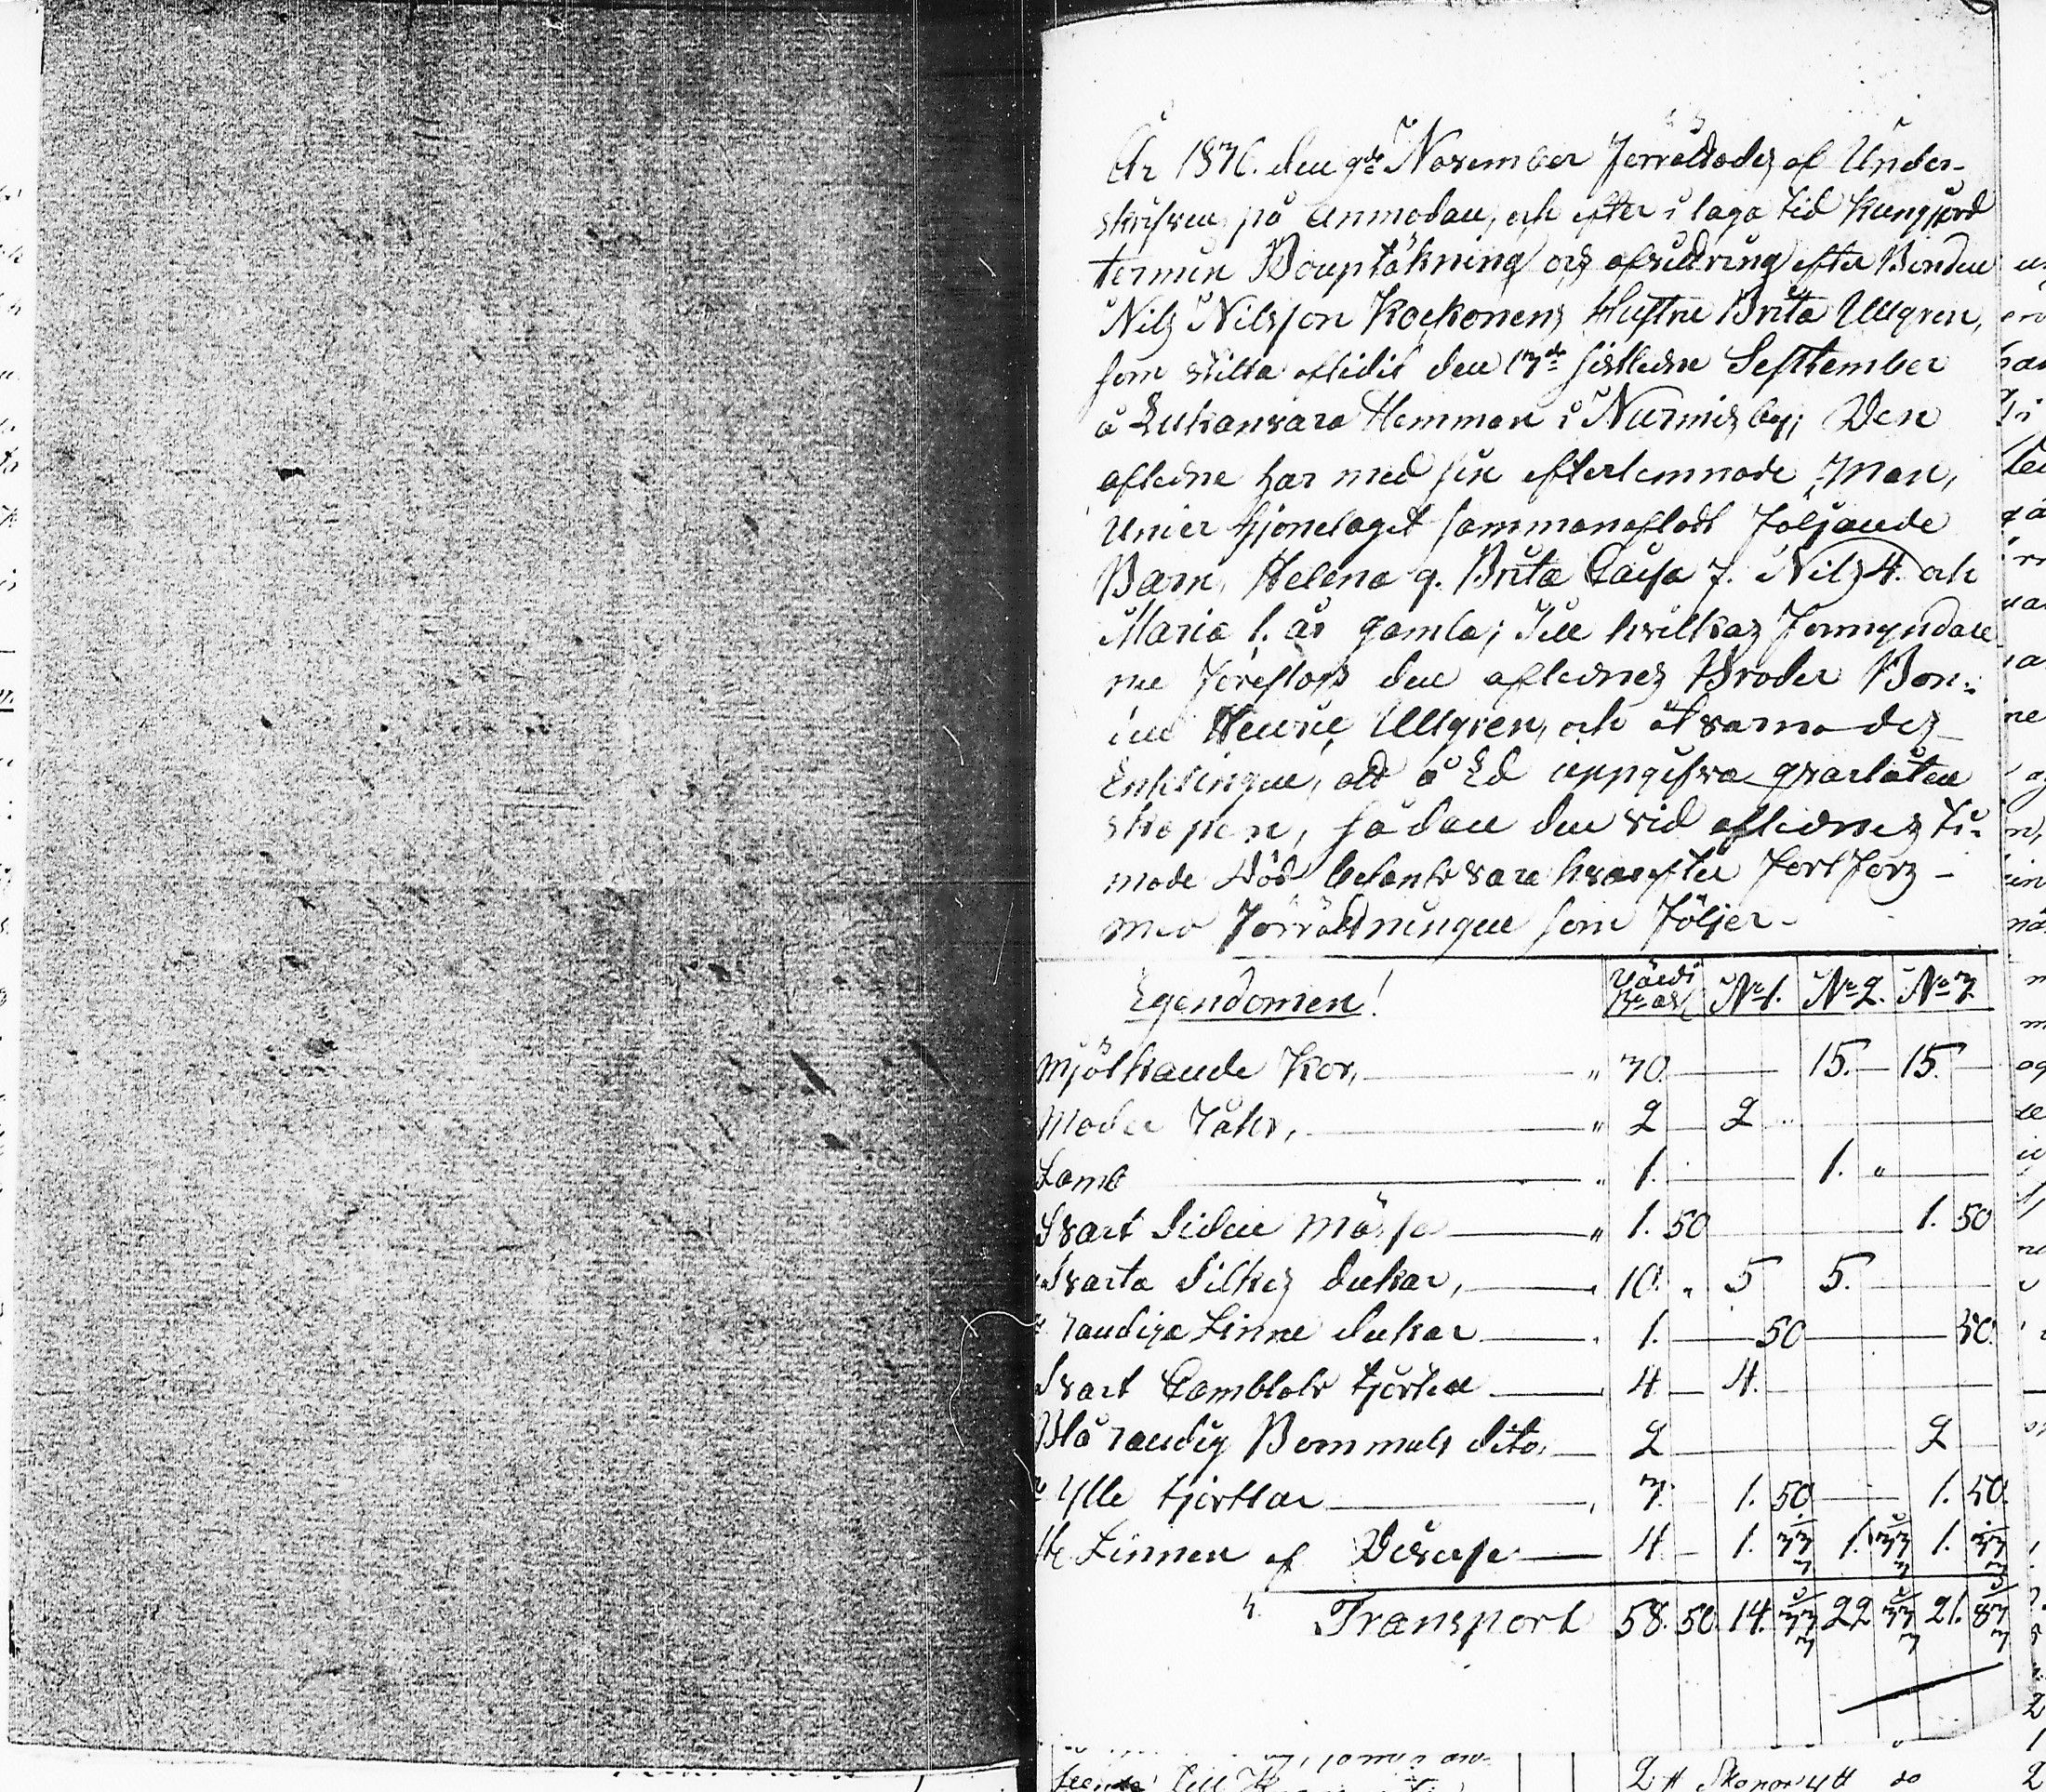 År 1836. den 9de November förrättades af Under-
skrifven, på Anmodan, och efter i laga tid kungjord
termin Bouptäkning och afvittring efter Bonden
Nils Nilsson Kockonens Hustru Brita Ullgren,
som stilla aflidit den 13de sistledne September
å Lukanvara Hemman i Nurmis by; Den
aflidne har med sin efterlemnade Man,
under hjonelaget sammanaflat följande
Barn, Helena 9. Brita Caisa 7. Nils 4. och
Maria 1. år gamla; Till hvilkas förmyndare
nu föreslogs den aflidnes Broder Bon-
den Henric Ullgren, och åtvarnades
Enklingen, att å Ed uppgifva qvarlåten
skapen, sådan den vid aflidnes ti-
made död befants vara hvarefter fortfors
med förrättningen som följer-
Egendomen! Värde N:o 1. N:o 2. N:o 3.
Mjölkande Kor, " 30. 15. 15.
Moder Får, " 2 2
Lamb " 1. 1. "
Svart Siden Mössa " 1. 50 1. 50
Svarta Silkes dukar, 10. " 5 5.
randiga Linne dukar 1. 50 50.
Svart Camblots kjortel 4 4.
Blå randig Bommuls dito, 2 2
Ylle kjortlar 3. 1. 50 1. 50.
st. Linnen af Diverse 4 1. 33 1/3 1. 33 1/3 1. 33 1/3
Transport 58. 50. 14. 33 1/3 22 33 1/3 21. 83 1/3
2 tt